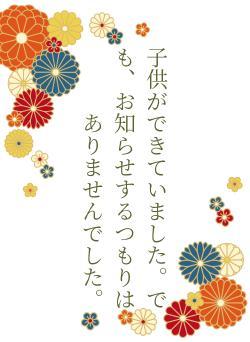 子供ができていました。で
も、お知らせするつもりは
ありませんでした。